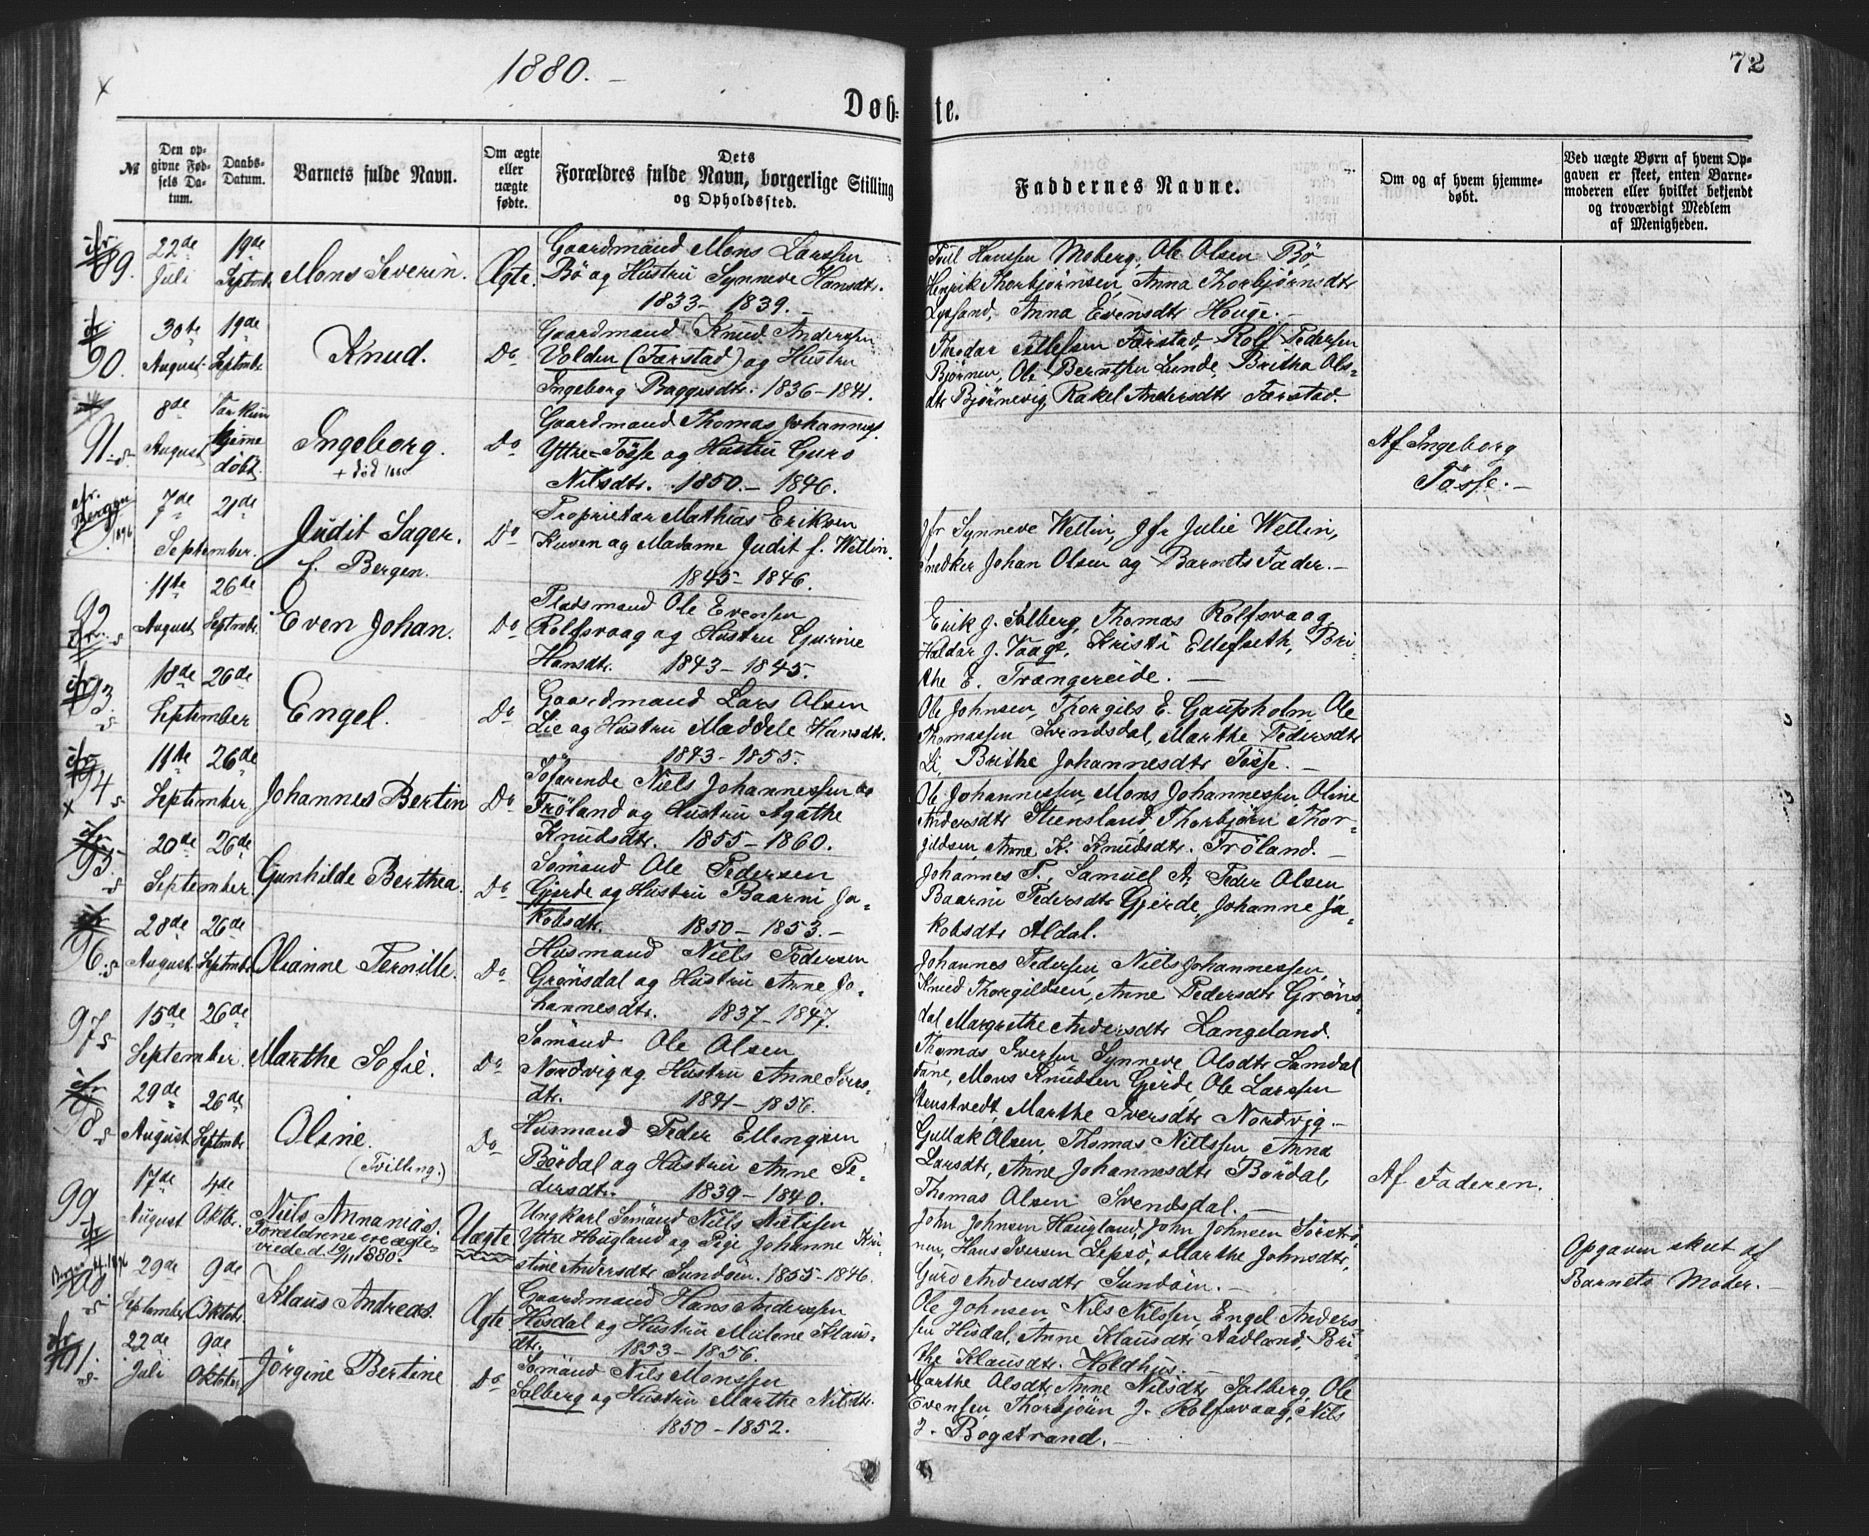 1880.
72
Døbte.
№
Den opgivne Fødsels Datum.
Daabs-Datum.
Barnets fulde Navn.
Om ægte eller uægte fødte.
Dets Forældres fulde Navn, borgerlige Stilling og Opholdssted.
Faddernes Navne.
Om og af hvem hjemmedøbt.
Ved uægte Børn af hvem Opgaven er skeet, enten Barnemoderen eller hvilket bekjendt og troværdigt Medlem af Menigheden.
89.
22de Juli
19de Septmbr
Mons Severin.
Ægte.
Gaardmand Mons Larssen
Bø og Hustru Synneve Hansdtr.
1833 - 1839.
Hanssen Moberg, Ole Olsen Bø
Henrik Thorbjørnsen, Anna Thorbjørnsdtr
Lyssand, Anna Evensdtr Hauge.
90.
30te August
19de Septmbr
Knud.
Do
Gaardmand Knud Anderssen
Volden (Færstad) og Hustru
Ingeborg Baggesdtr. 1836 - 1841.
Tillefsen Færstad, Rolf Pedersen
Bjørnen, Ole Berntsen Lunde Britha Ols-
dtr Bjørnevig, Rakel Andersdtr Færstad.
91
8de August
Tar kun hjemedøbt
Ingeborg.
+ død
Do
Gaardmand Thomas Johanness.
Yttre-Tøsse og Hustru Guro
Nilsdtr. 1850. - 1846.
Af Ingeborg
Tøsse. -
Bergen 1896
7de
21de
September.
Judit Sager.
f. Bergen.
Do
Proprietær Mathias Eriksen
Kuven og Madame Judit f. Wellin.
1845 - 1846.
Jfr Synneve Wellin, Jfr Julie Wellin,
Snedker Johan Olsen og Barnets Fader. -
92
11te August
26de Septmbr.
Even Johan.
Do
Pladsmand Ole Evensen
Rolfsvaag og Hustru Gurine
Hansdtr. 1843 - 1845.
Erik J. Solberg, Thomas Rolfsvaag
Haldor J. Vaage, Kristi Ellefseth, Bri-
the E. Trængereide. -
93.
18de
26de
September
Engel.
Do
Gaardmand Lars Olsen
Lie og Hustru Maddele Hansdtr.
1843 - 1855.
Ole Johnsen, Thorgils E. Gaupholm, Ole
Thomassen Svendsdal, Marthe Pedersdtr
Li, Brithe Johannesdtr Tøsse. -
94
x
11te
26de
September
Johannes Bertin
Do
Søfarende Niels Johannessen
Frøland og Hustru Agathe
Knudsdtr. 1855 - 1860.
Ole Johannessen, Mons Johannessen, Oline
Andersdtr Steensland, Thorbjørn Thor-
gildsen, Anne K. Knudsdtr. Frøland. -
95
20de
26de
September
Gunhilde Berthea.
Do
Sømand Ole Pedersen
Gjerde og Hustru Baarni Ja-
kobsdtr. 1850 - 1853. -
Johannes P., Samuel A. Peder Olsen
Baarni Pedersdtr Gjerde, Johanne Ja-
kobsdtr Aldal.
96
28de August
26de Septmbr
Olianne Pernille.
Do
Husmand Niels Pedersen
Grønsdal og Hustru Anne Jo-
hannesdtr. 1837 - 1847.
Johannes Pedersen, Niels Johannessen,
Knud Thorgildsen, Anne Pedersdtr Grøns-
dal Margrethe Andersdtr Langeland.
97
15de
26de
September
Marthe Sofie.
Do
Sømand Ole Olsen
Nordvig og Hustru Anne Ivers-
dtr. 1841 - 1856.
Thomas Iversen, Synneve Olsdtr Samdal
Fane, Mons Knudsen Gjerde, Ole Larssen
Stenstvedt, Marthe Iversdtr Nordvig. -
98
29de August
26de Septmbr
Oline.
(Tvilling.)
Do
Husmand Peder Ellingsen
Børdal og Hustru Anne Pe-
dersdtr. 1839 - 1840.
Gullak Olsen, Thomas Nielssen, Anna
Larsdtr, Anne Johannesdtr Børdal,
Thomas Olsen Svendsdal. -
Af Faderen.
99
17de August
4de Oktbr.
Niels Annanias
Forældrene ere ægte-
viede d. 19/11 1880.
Uægte
Ungkarl Sømand Niels Nielssen
Yttre Haugland og Pige Johanne Kri-
stine Andersdtr Sundøen. 1855 - 1846.
John Johnsen Haugland, John Johnsen Tørstrø-
nen, Hans Iversen Lepsø, Marthe Johnsdtr,
Guro Andersdtr Sundøen. -
Opgaven skeet af
Barnets Moder. -
100.
29de September
9de Oktobr
Klaus Andreas.
Ægte
Gaardmand Hans Anderssen
Hisdal og Hustru Malene Klaus-
dtr. 1853 - 1856.
Ole Johnsen, Nils Nilssen, Engel Anders-
sen Hisdal, Anne Klausdtr Aadland, Bri-
the Klausdtr. Holdhus. -
101.
22de Juli
9de Oktober
Jørgine Bertine
Do
Sømand Nils Monssen
Solberg og Hustru Marthe Nilsdtr.
1850 - 1852.
Marthe Olsdtr, Anne Nilsdtr Solberg, Ole
Evensen, Thorbjørn J. Rolfsvaag, Nils
J. Bogstrand. -